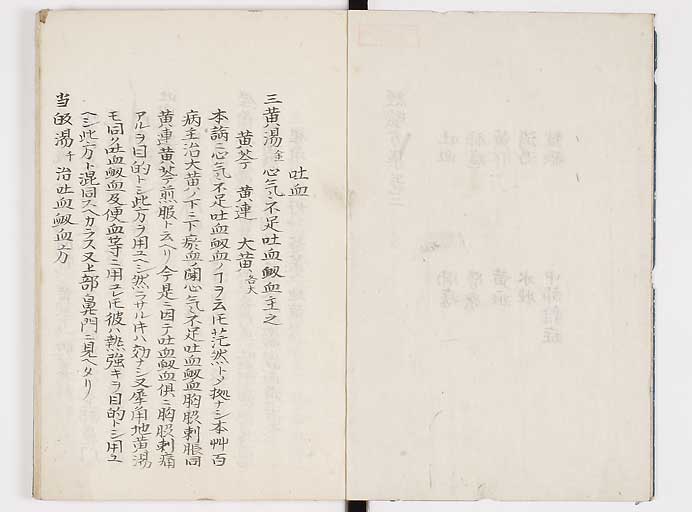 吐血
三黄湯 金 心気不足吐血衂血主之
黄芩 黄連 大黄 各大
本論ニ心気不足吐血衂血ノヿヲ云𪜈茫然トメ拠ナシ本艸百
病主治大黄ノ下ニ下瘀血ノ閉心気不足吐血衂血胸脇刺脹同
黄連黄芩煎服ト云ヘリ今是ニ因テ吐血衂血俱ニ胸脇刺痛
アルヲ目的トシ此方ヲ用ユヘシ然ラサル𪜈ハ効ナシ又犀角地黄湯
モ同ク吐血衂血及便血等ニ用ユレ𪜈彼ハ熱強キヲ目的トシ用ユ
ヘシ此方ト混同スヘカラス又上部鼻門ニ見ヘタリ
当 湯 千 治吐血衂血方